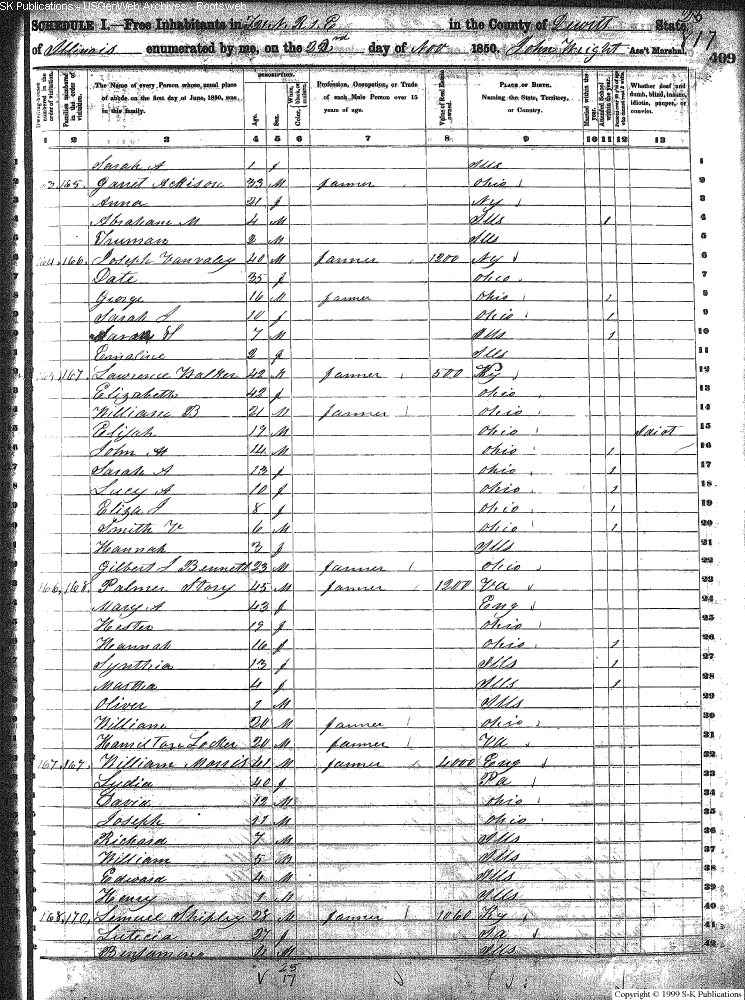 SK Publications - USGenWeb Archives - Rootsweb
SCHEDULE I.—Free Inhabitants in R 1 E in the County of Dewitt State
of Illinois enumerated by me, on the 22nd day of Nov 1850. John Wright Ass't Marshal. 417
409
Dwelling-houses numbered in the order of visitation.
Families numbered in the order of visitation.
The Name of every Person whose usual place of abode on the first day of June, 1850, was in this family.
DESCRIPTION.
Age.
Sex.
White, black, or mulatto. Color,
Profession, Occupation, or Trade of each Male Person over 15 years of age.
Value of Real Estate owned.
PLACE OF BIRTH. Naming the State, Territory, or Country.
Married within the year.
Attended School within the year.
Whether deaf and dumb, blind, insane, idiotic, pauper, or convict.
1 2 3 4 5 6 7 8 9 10 11 12 13
Sarah A 1 f Ills 1
165 Garret Ackison 33 M farmer Ohio 2
Anna 21 f Ny 3
Abraham M 4 M Ills 1 4
Truman 2 M Ills 5
166 Joseph Vanvaley 40 M farmer 1200 Ny 6
Date 35 f Ohio 7
George 16 M farmer Ohio 1 8
Sarah J 10 f Ohio 1 9
7 M Ills 1 10
Emaline 2 f Ills 11
167 Lawrence Walker 42 M farmer 500 Ky 12
Elizabeth 42 f Ohio 13
William B 21 M farmer Ohio 14
Elijah 19 M Ohio Idiot 15
John H 14 M Ohio 1 16
Sarah A 13 f Ohio 1 17
Lucy A 10 f Ohio 1 18
Eliza J 8 f Ohio 1 19
Smith 6 M Ohio 1 20
Hannah 3 f Ills 21
Gilbert S Bennett 23 M farmer Ohio 22
166 168 Palmer Story 45 M farmer 1200 Va 23
Mary A 43 f Eng 24
Hester 19 f Ohio 25
Hannah 16 f Ohio 1 26
Synthia 13 f Ills 1 27
Martha 4 f Ills 1 28
Oliver 1 M Ills 29
William 20 M farmer Ohio 30
Hamilton Locker 20 M farmer Va 31
167 William Morris 41 M farmer 4000 Eng 32
Lydia 40 f Pa 33
David 12 M Ohio 34
Joseph 11 M Ohio 35
Richard 7 M Ills 36
William 5 M Ills 37
Edward 4 M Ills 38
Henry 1 M Ills 39
168 170 Lemuel Shipley 28 M farmer 1060 Ky 40
Luticia 27 f 41
Benjamin 4 M Ills 42
25
17
Copyright © 1999 S-K Publications